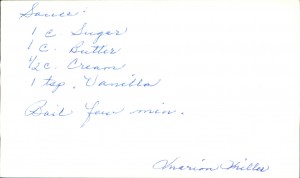 Sauce:
1 c Sugar
1 c. Butter
1/2 c. Cream
1 tsp. Vanilla
Boil few min.
Marion Miller